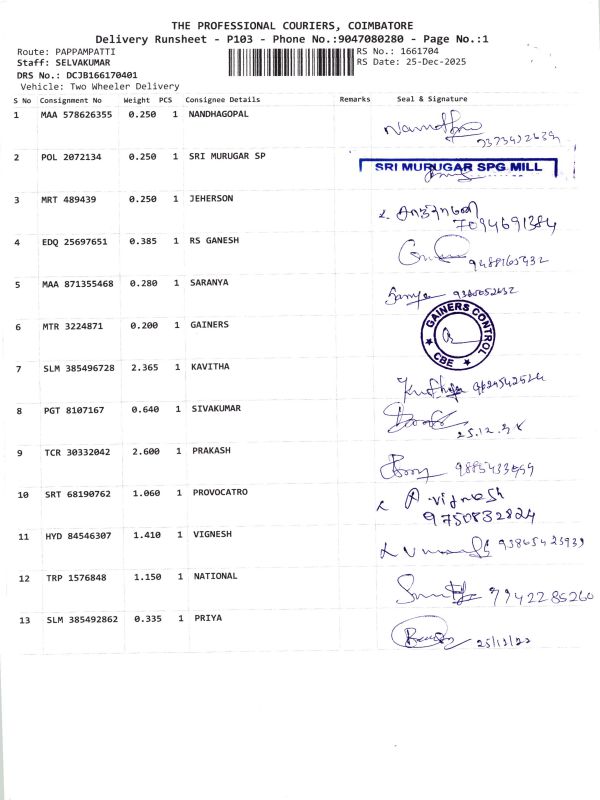 THE PROFESSIONAL COURIERS, COIMBATORE
Delivery Runsheet - P103 - Phone No.:9047080280 - Page No.:1
Route: PAPPAMPATTI RS No.: 1661704
Staff: SELVAKUMAR RS Date: 25-Dec-2025
DRS No.: DCJB166170401
Vehicle: Two Wheeler Delivery
S No Consignment No Weight PCS Consignee Details Remarks Seal & Signature
1 MAA 578626355 0.250 1 NANDHAGOPAL
2 POL 2072134 0.250 1 SRI MURUGAR SP SRI MURUGAR SPG MILL
3 MRT 489439 0.250 1 JEHERSON
7094691384
4 EDQ 25697651 0.385 1 RS GANESH
9488165432
5 MAA 871355468 0.280 1 SARANYA
6 MTR 3224871 0.200 1 GAINERS GAINERS CONTROL CBE
7 SLM 385496728 2.365 1 KAVITHA
8 PGT 8107167 0.640 1 SIVAKUMAR
9 TCR 30332042 2.600 1 PRAKASH
10 SRT 68190762 1.060 1 PROVOCATRO
9750832824
11 HYD 84546307 1.410 1 VIGNESH
12 TRP 1576848 1.150 1 NATIONAL
7942285260
13 SLM 385492862 0.335 1 PRIYA